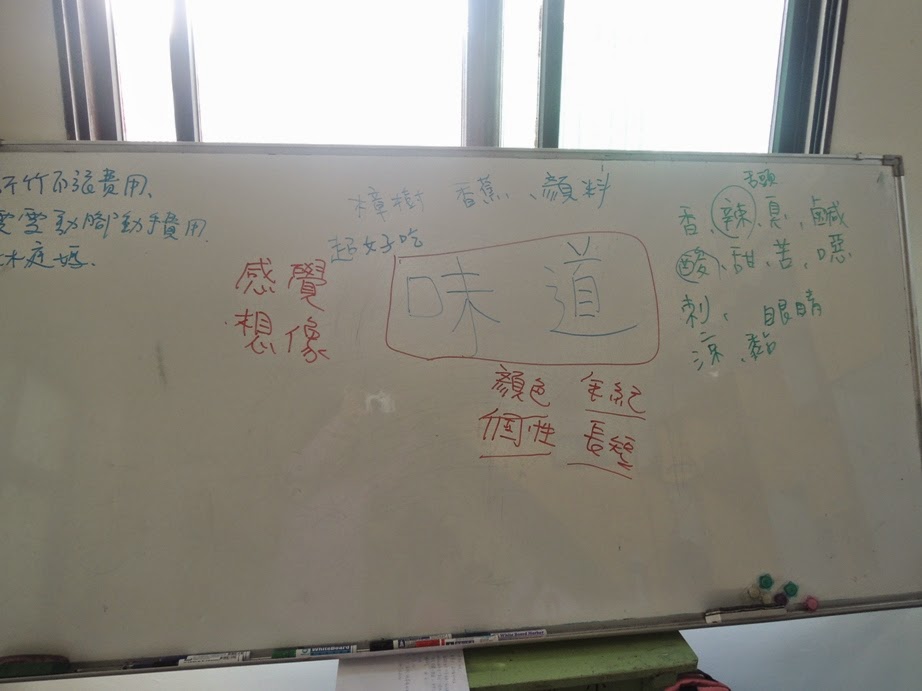 費用、
動腳動手費用
樟樹 香蕉、顏料
超好吃
味道
感覺
想像
顏色 年紀
個性 長短
舌頭
香、辣、臭、鹹
酸、甜、苦、噁
刺、眼睛
涼、黏
WhiteBoard